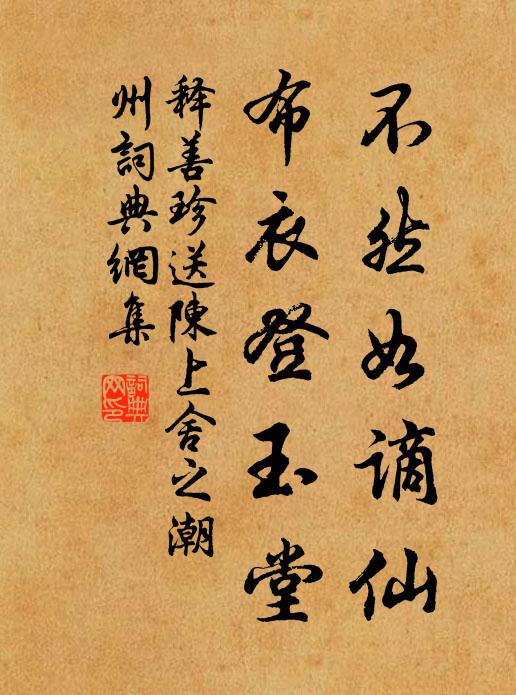 不然如谪仙
布衣登玉堂
释善珍送陳上舍之潮
州詞典網集
詞典
网印